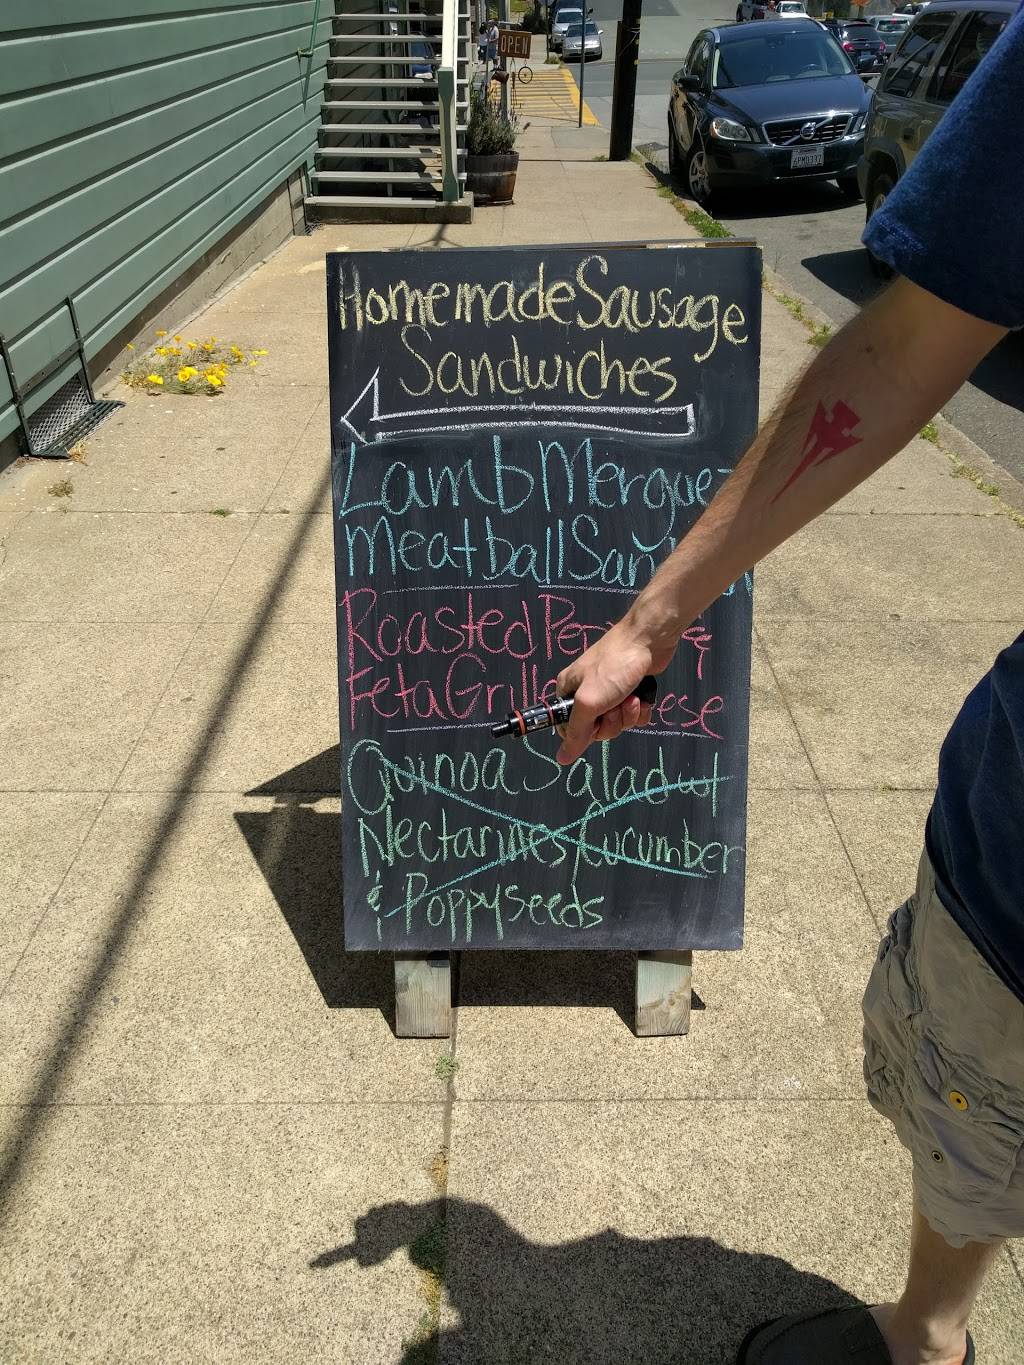 OPEN
6PMD337
Homemade Sausage
Sandwiches
Lamb Merguez
Meatball
Roasted &
Feta
Quinoa Salad w/
Nectarines, Cucumber
& Poppyseeds